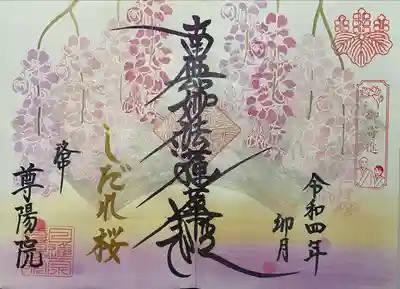 令和四年
卯月
南無妙法蓮華経
しだれ桜
尊陽院